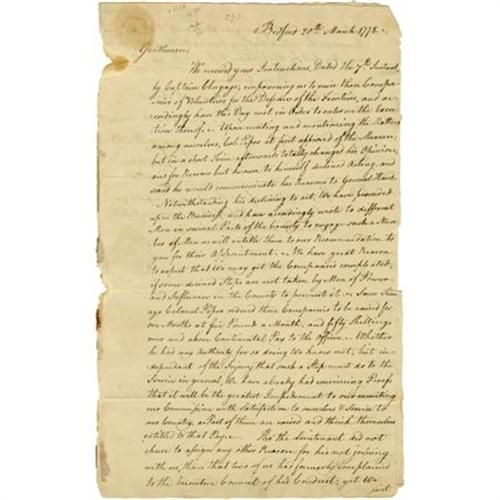 Bedford 20th March 1778.
Gentlemen
We received your Instructions, Dated the 7th Instant,
by Captain Clugage, impowering us to raise three Compa-
nies of Volunteers for the Defence of the Frontiers, and ac-
cordingly have this Day met in Order to enter on the Exe-
cution thereof. Upon meeting and mentioning the Matter
among ourselves, Col. Piper at first approved of the Measure,
but in a short Time afterwards totally changed his Opinion,
and for Reasons best known to himself declined Acting, and
said he would communicate his Reasons to General Hand.
Notwithstanding his declining to act, We have proceeded
upon the Business, and have accordingly wrote to different
Men in several Parts of the County to engage such a Num-
ber of Men as will entitle them to our Recommendation to
you for their Appointment. We have great Reason
to expect that We may get the Companies compleated,
if some devised Steps are not taken by Men of Power
and Influence in the County to prevent it. Some Time
ago Colonel Piper ordered three Companies to be raised for
Months at five Pounds a Month, and fifty Shillings
over and above Continental Pay to the Officers. Whether
he had any Authority for so doing We know not; but in-
dependant of the Injury that such a Step must do to the
Service in general, We have already had convincing Proofs
that it will be the greatest Impediment to our executing
our Commission with Satisfaction to ourselves & Service to
our Country, as Part of them are raised and think themselves
entitled to that Pay. Tho the Lieutenant did not
chuse to assign any other Reason for his not joining
with us, than that two of us had formerly complained
to the Executive Council of his Conduct; yet We